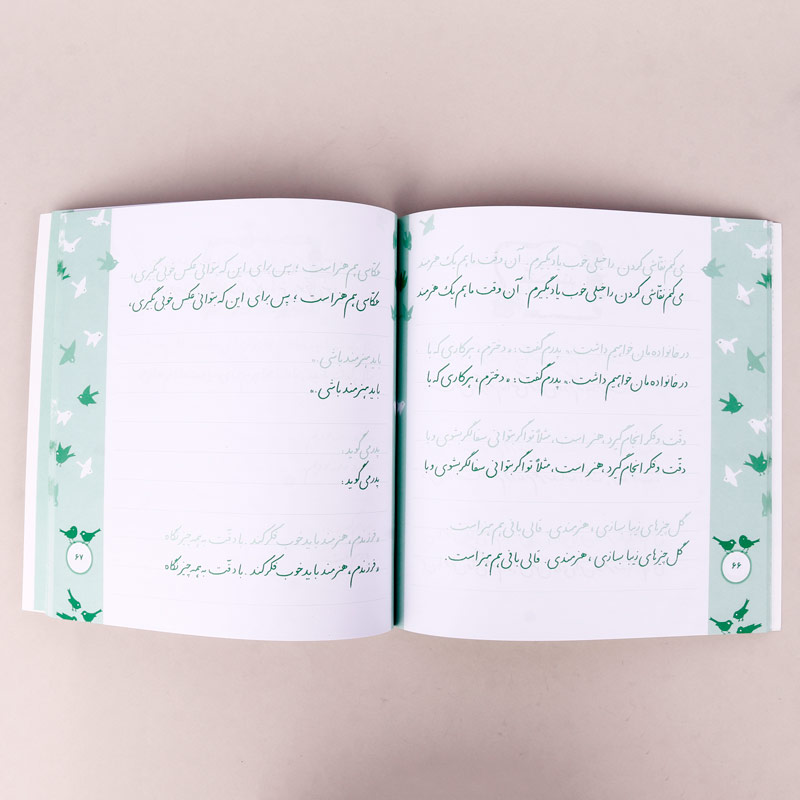 می‌کنم نقاشی کردن را خیلی خوب یاد بگیرم. آن وقت ما هم یک هنرمند
می‌کنم نقاشی کردن را خیلی خوب یاد بگیرم. آن وقت ما هم یک هنرمند
در خانواده‌مان خواهیم داشت.» پدرم گفت: «دخترم، هر کاری که با
در خانواده‌مان خواهیم داشت.» پدرم گفت: «دخترم، هر کاری که با
دقّت و فکر انجام گیرد، هنر است، مثلاً تو اگر بتوانی سفالگر بشوی و با
دقّت و فکر انجام گیرد، هنر است، مثلاً تو اگر بتوانی سفالگر بشوی و با
گل چیزهای زیبا بسازی، هنرمندی. قالی بافی هم هنر است.
گل چیزهای زیبا بسازی، هنرمندی. قالی بافی هم هنر است.
۶۶
عکاسی هم هنر است؛ پس برای این که بتوانی عکس خوبی بگیری،
عکاسی هم هنر است؛ پس برای این که بتوانی عکس خوبی بگیری،
باید هنرمند باشی.»
باید هنرمند باشی.»
پدر می‌گوید:
پدر می‌گوید:
«فرزندم، هنرمند باید خوب فکر کند. با دقّت به همه چیز نگاه
«فرزندم، هنرمند باید خوب فکر کند. با دقّت به همه چیز نگاه
۶۷